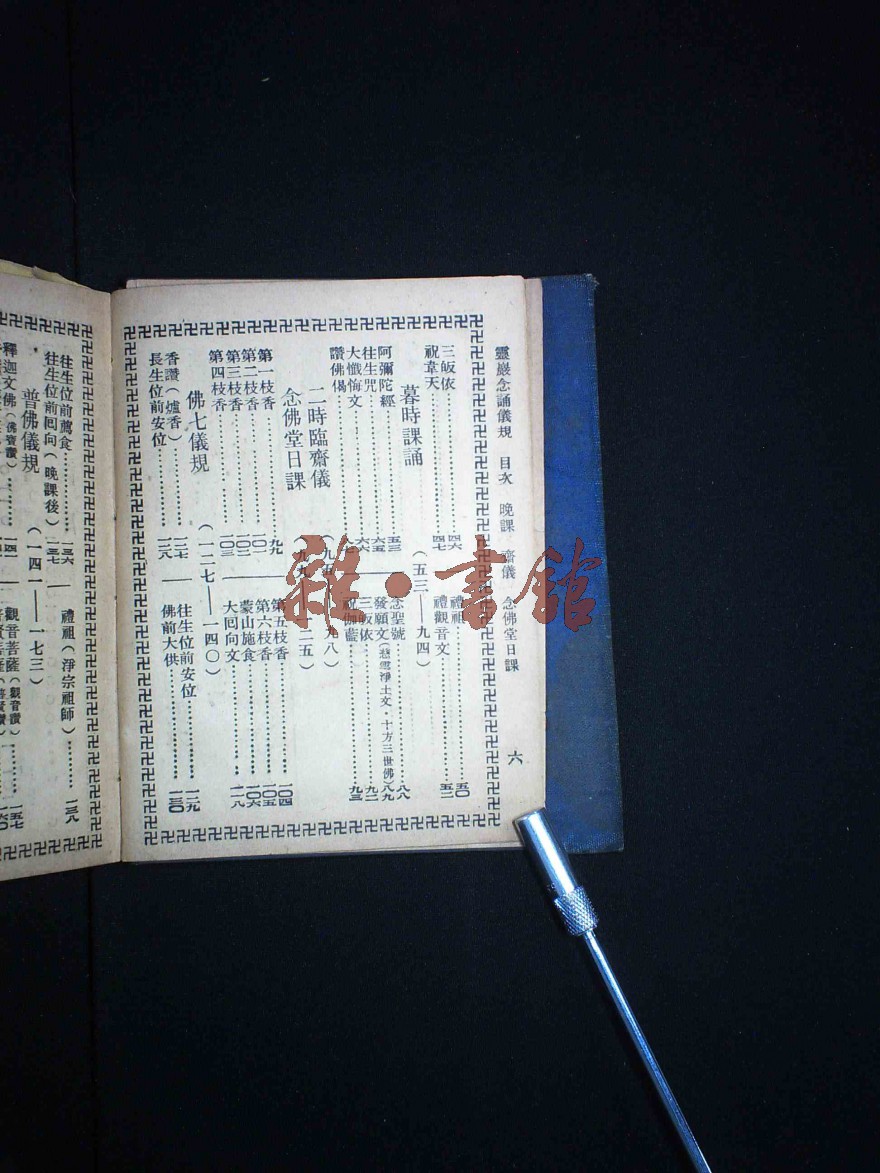 靈巖念誦儀規 目次 晚課 齋儀 念佛堂日課 六
三皈依 四六
禮祖 五〇
祝韋天 四七
禮觀音文 五二
暮時課誦 (五三——九四)
阿彌陀經 五三
念聖號 八八
往生咒 六五
發願文(慈雲淨土文·十方三世佛) 八九
大懺悔文 六六
三皈依 九二
讚佛偈
祝伽藍 九三
二時臨齋儀
念佛堂日課
第一枝香 九九
第五枝香 一〇四
第二枝香 一〇一
第六枝香 一〇五
第三枝香 一〇二
蒙山施食 一〇六
第四枝香 一〇三
大回向文 一一八
佛七儀規 (一二七——一四〇)
香讚(爐香) 一二七
往生位前安位 一二九
長生位前安位 一二八
佛前大供 一三〇
往生位前薦食 一三六
禮祖(淨宗祖師) 一三八
往生位前回向(晚課後) 一三七
普佛儀規 (一四一——一七三)
釋迦文佛(佛寶讚) 一四一
觀音菩薩(觀音讚) 一五七
雜·書館